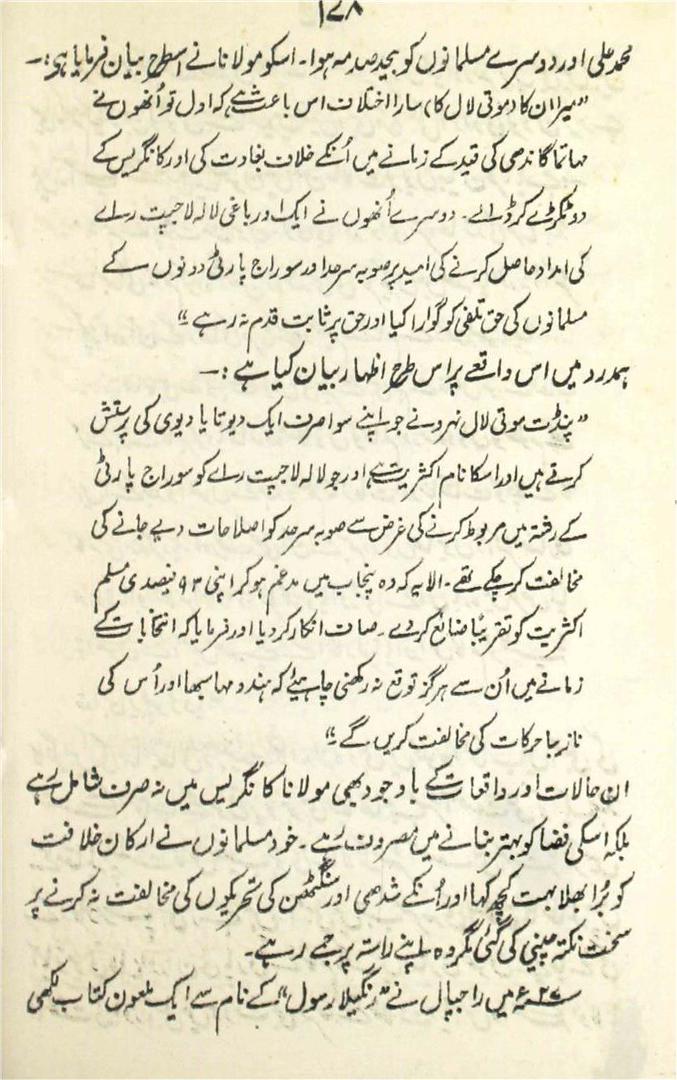 ۱۷۸
محمد علی اور دوسرے مسلمانوں کو بیحد صدمہ ہوا۔ اسکو مولانا نے اسطرح بیان فرمایا ہو:۔
"میرا ان کا (موتی لال کا) سارا اختلاف اس باعث ہے کہ اول تو اُنھوں نے
مہاتما گاندھی کی قید کے زمانے میں اُنکے خلاف بغاوت کی اور کانگریس کے
دو ٹکڑے کر ڈالے۔ دوسرے اُنھوں نے ایک اور باغی لالہ لاجپت راے
کی امداد حاصل کرنے کی امید پر صوبہ سرحد اور سوراج پارٹی دونوں کے
مسلمانوں کی حق تلفی کو گوارا کیا اور حق پر ثابت قدم نہ رہے"
ہمدرد میں اس واقعے پر اس طرح اظہار بیان کیا ہے:۔
"پنڈت موتی لال نہرو نے جو اپنے سوا صرف ایک دیوتا یا دیوی کی پرستش
کرتے ہیں اور اسکا نام اکثریت ہے اور جو لالہ لاجپت راے کو سوراج پارٹی
کے رشتہ میں مربوط کرنے کی غرض سے صوبہ سرحد کو اصلاحات دیے جانے کی
مخالفت کر چکے تھے۔ الا یہ کہ وہ پنجاب میں مدغم ہو کر اپنی ۹۳ فیصدی مسلم
اکثریت کو تقریبًا ضائع کر دے۔ صاف انکار کر دیا اور فرمایا کہ انتخابات کے
زمانے میں اُن سے ہرگز توقع نہ رکھنی چاہیئے کہ ہندو مہاسبھا اور اُس کی
نازیبا حرکات کی مخالفت کریں گے"
ان حالات اور واقعات کے باوجود بھی مولانا کانگریس میں نہ صرف شامل رہے
بلکہ اسکی فضا کو بہتر بنانے میں مصروف رہے۔ خود مسلمانوں نے ارکان خلافت
کو بُرا بھلا بہت کچھ کہا اور اُنکے شدھی اور سنگٹھن کی تحریکوں کی مخالفت نہ کرنے پر
سخت نکتہ چینی کی گئی مگر وہ اپنے راستہ پر جمے رہے۔
۲۷ء میں راجپال نے "رنگیلا رسول" کے نام سے ایک ملعون کتاب لکھی